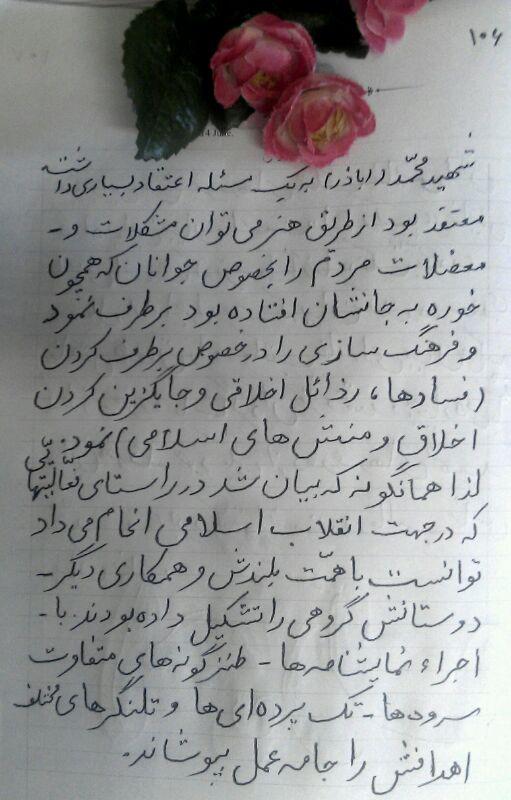 ۱۰۶
14 June.
شهید محمّد (اباذر) به یک مسئله اعتقاد بسیاری داشته
معتقد بود از طریق هنر می توان مشکلات و-
معضلات مردم را بخصوص جوانان که همچون
خوره به جانشان افتاده بود برطرف نمود
و فرهنگ سازی را در خصوص برطرف کردن
(فسادها، رذائل اخلاقی و جایگزین کردن
اخلاق و منش های اسلامی) نمود.
لذا همانگونه که بیان شد در راستای فعّالیّتها
که در جهت انقلاب اسلامی انجام می داد
توانست با همّت بلندش و همکاری دیگر-
دوستانش گروهی را تشکیل داده بودند. با-
اجراء نمایشنامه ها - طنزگونه های متفاوت
سرودها - تک پرده ای ها و تلنگرهای مختلف
اهدافش را جامه عمل بپوشاند.